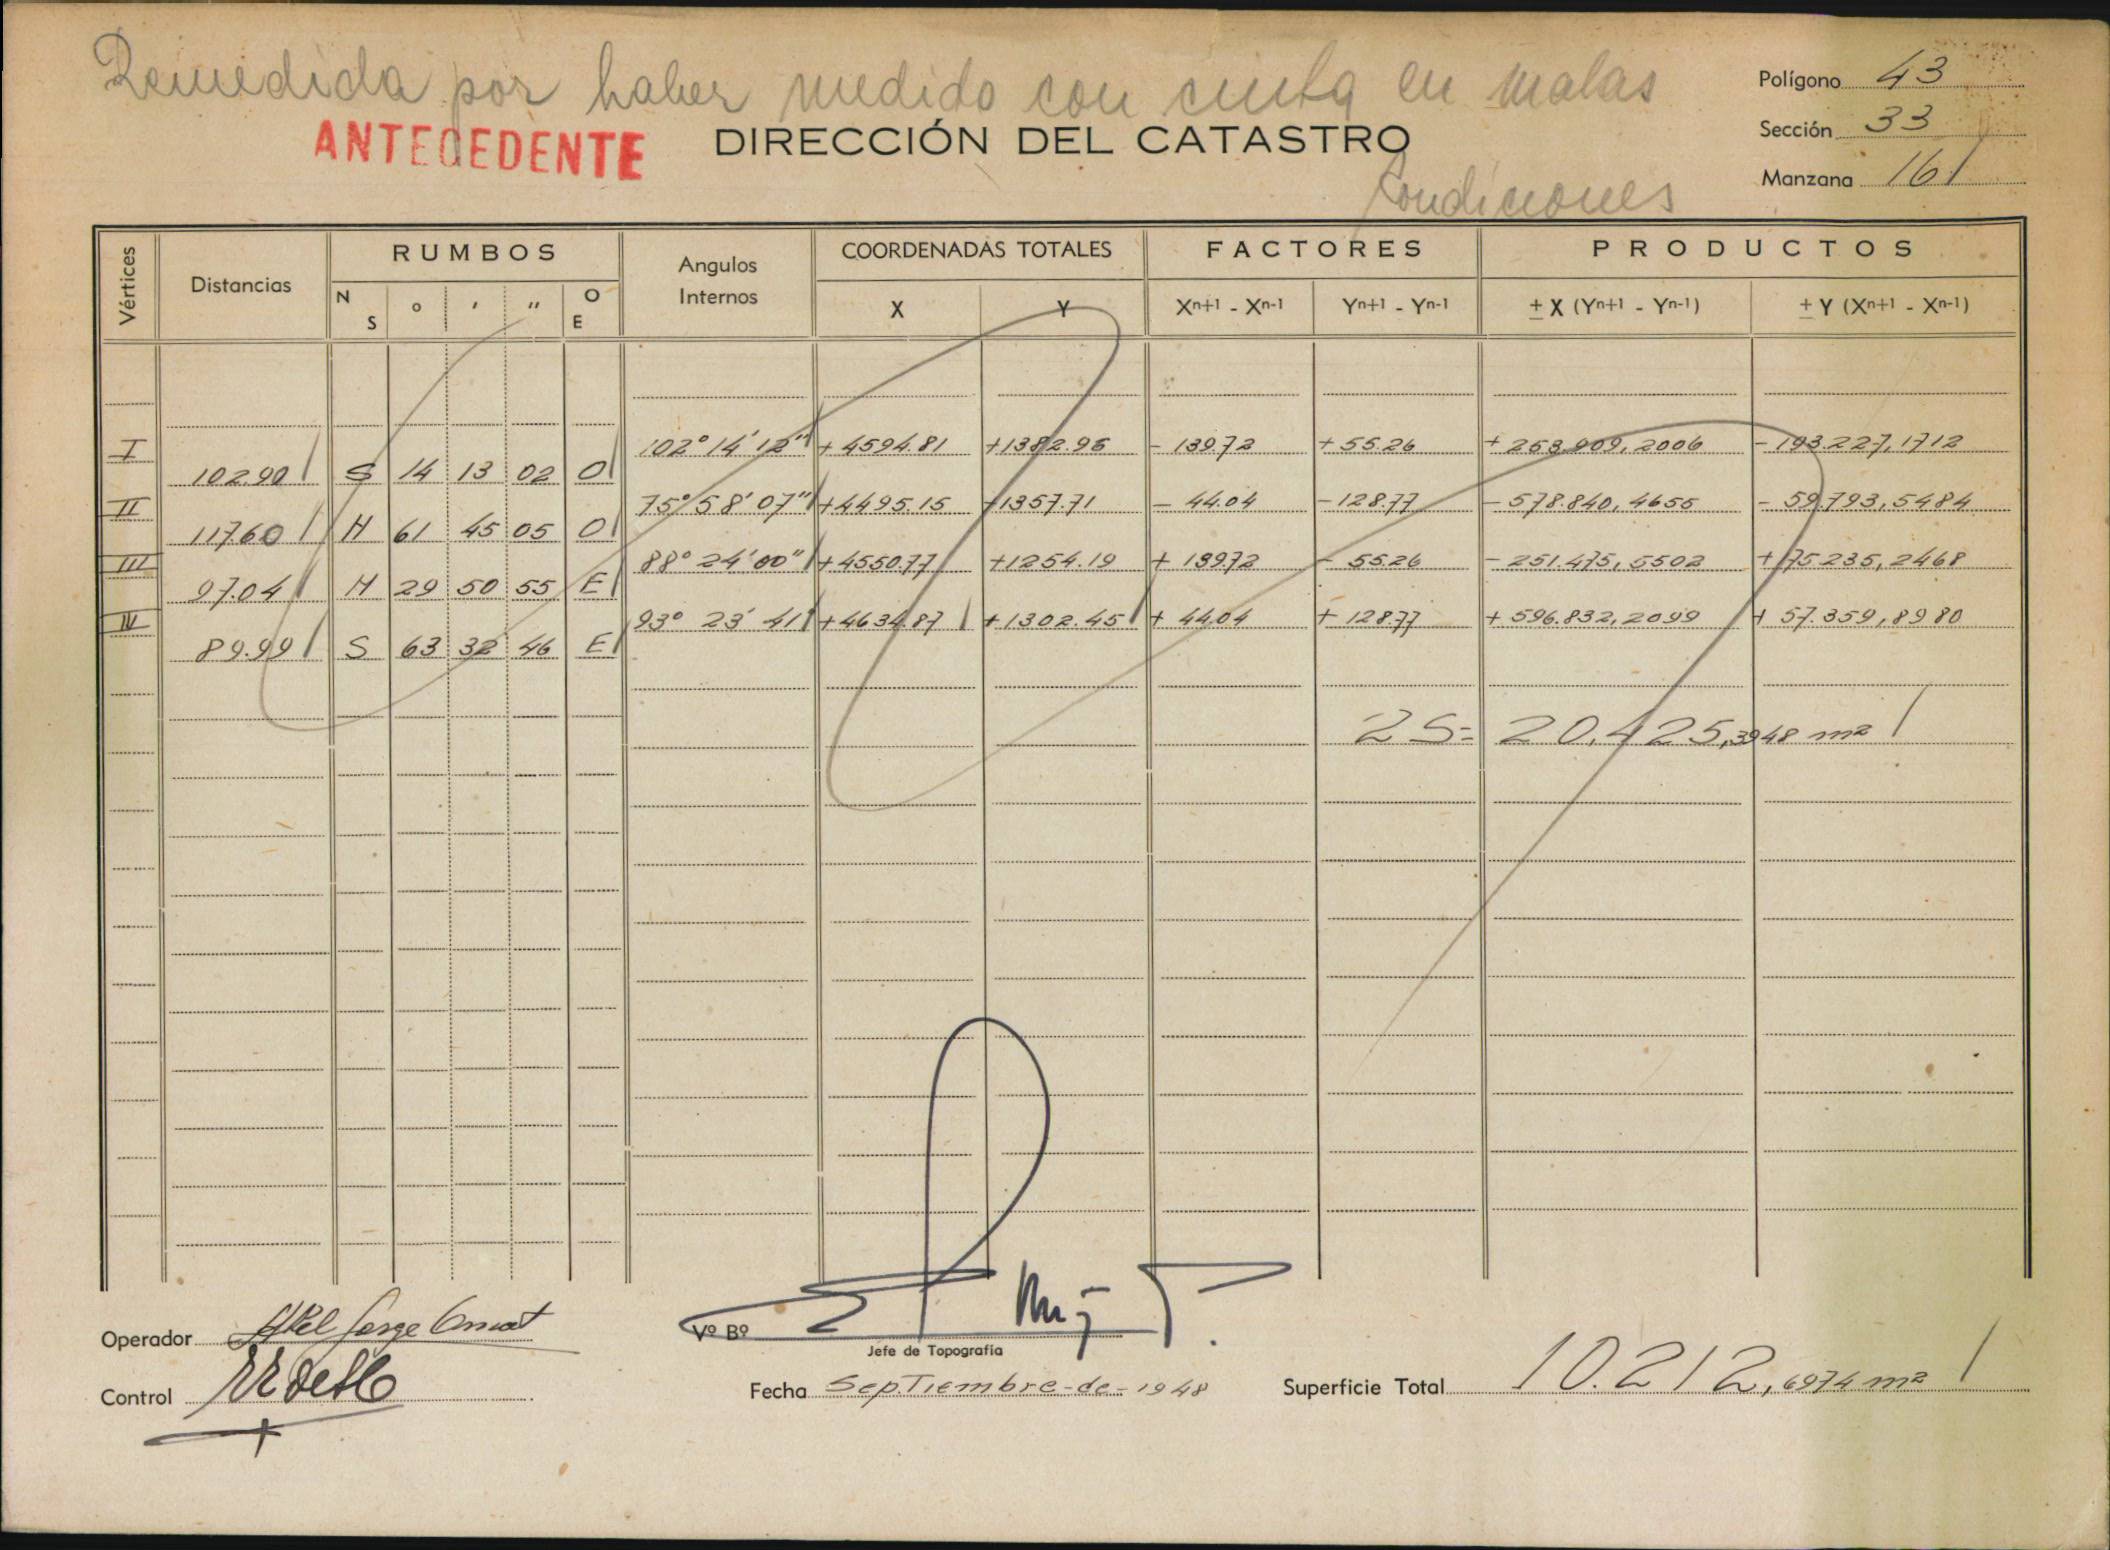 Remedida por haber medido con cinta en malas
condiciones
ANTECEDENTE
DIRECCIÓN DEL CATASTRO
Polígono 43
Sección 33
Manzana 161
Vértices Distancias RUMBOS Angulos Internos COORDENADAS TOTALES FACTORES PRODUCTOS
N S ° ' " O E X Y Xn+1 - Xn-1 Yn+1 - Yn-1 ± X (Yn+1 - Yn-1) ± Y (Xn+1 - Xn-1)
I 102°14'12" +4594.81 +1382.96 -139.72 +55.26 +253.909,2006 -193.227,1712
102.90 S 14 13 02 O
II 75°58'07" +4495.15 +1357.71 -44.04 -128.77 -578.840,4655 -59.793,5484
117.60 N 61 45 05 O
III 88°24'00" +4550.77 +1254.19 +139.72 -55.26 -251.475,5502 +175.235,2468
97.04 N 29 50 55 E
IV 93° 23' 41" +4634.87 +1302.45 +44.04 +128.77 +596.832,2099 +57.359,8980
89.99 S 63 32 46 E
2S= 20.425,3948 m²
Operador
Control
Vº Bº
Jefe de Topografía
Fecha Septiembre-de-1948
Superficie Total 10.212,6974 m²